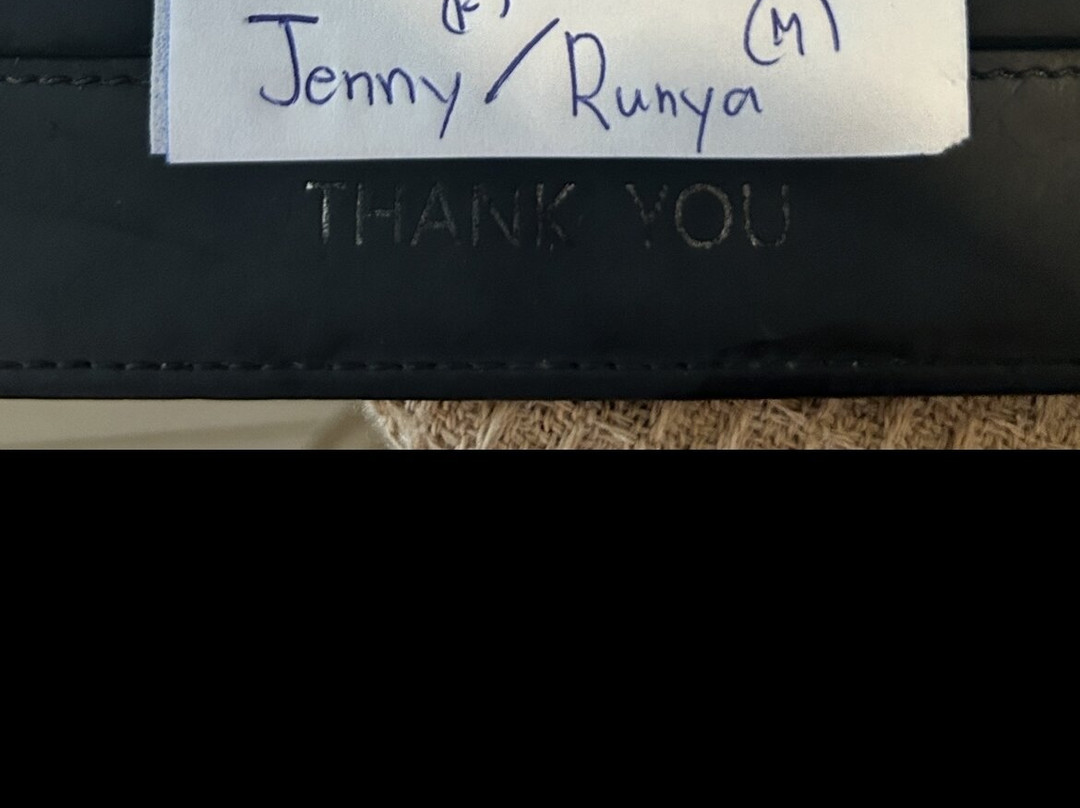 Jenny / Runya (M)
THANK YOU